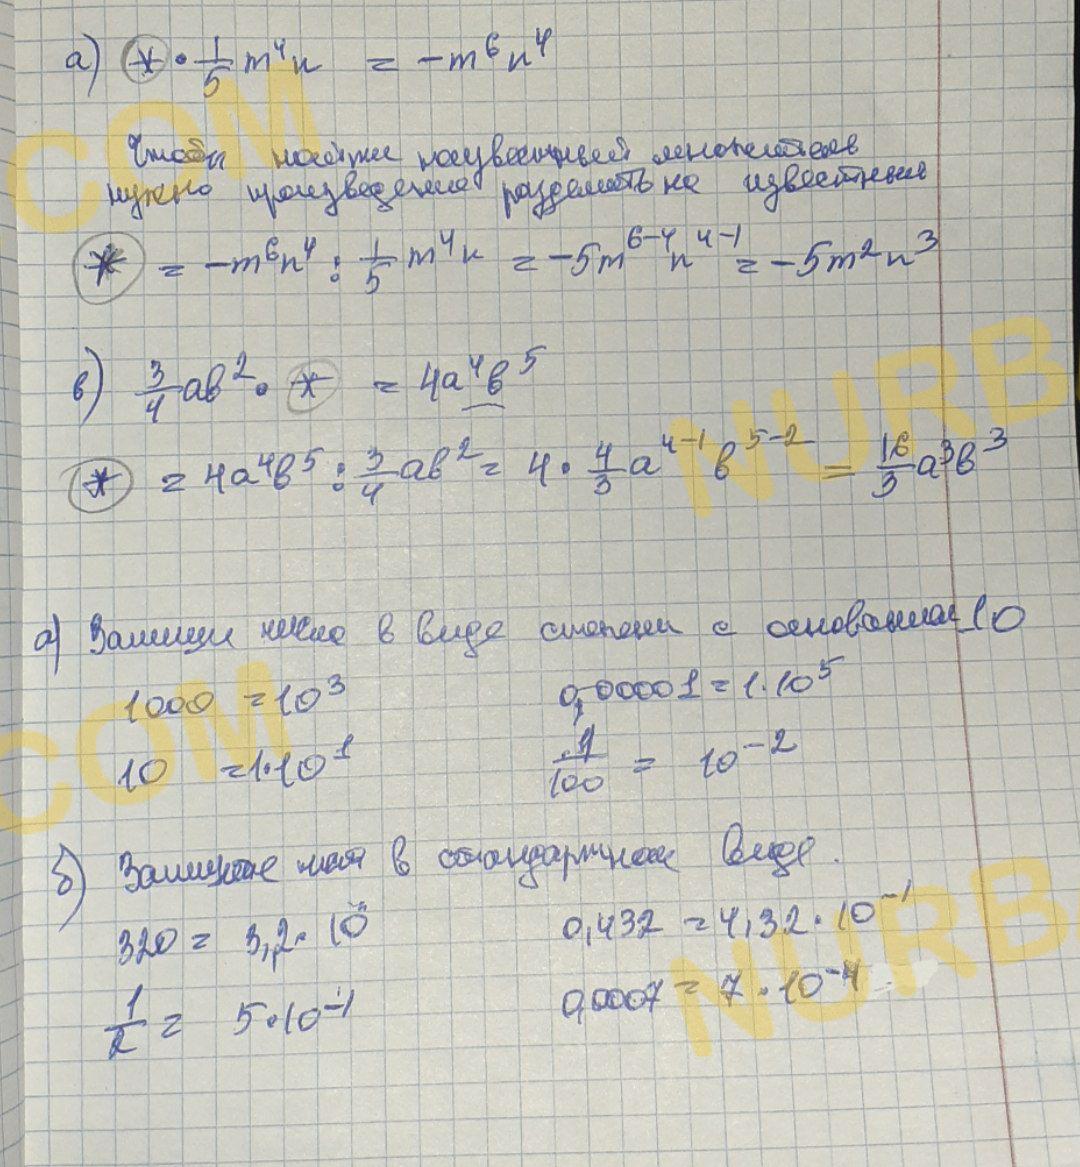 а) * · 1/5 m⁴n = -m⁶n⁴
Чтобы найти неизвестный множитель
нужно произведение разделить на известный
* = -m⁶n⁴ : 1/5 m⁴n = -5m⁶⁻⁴n⁴⁻¹ = -5m²n³
в) 3/4 ав² · * = 4а⁴в⁵
* = 4а⁴в⁵ : 3/4 ав² = 4 · 4/3 а⁴⁻¹ в⁵⁻² = 16/3 а³в³
а) Запиши число в виде степени с основанием 10
1000 = 10³ 0,00001 = 1·10⁵
10 = 1·10¹ 1/100 = 10⁻²
б) Запишите в стандартном виде.
320 = 3,2 · 10 0,432 = 4,32 · 10⁻¹
1/2 = 5·10⁻¹ 0,0007 = 7 · 10⁻⁴
COM
NURB
COM
NURB